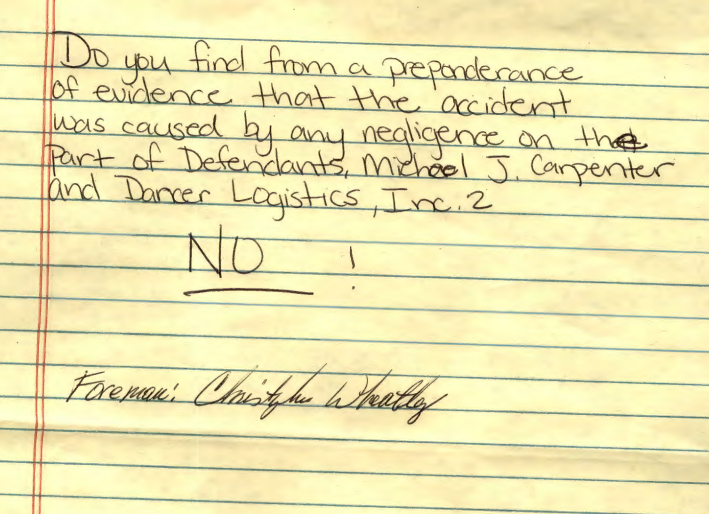 Do you find from a preponderance
of evidence that the accident
was caused by any negligence on the
part of Defendants, Michael J. Carpenter
and Dancer Logistics, Inc.?
NO !
Foreman: Christopher Wheatley